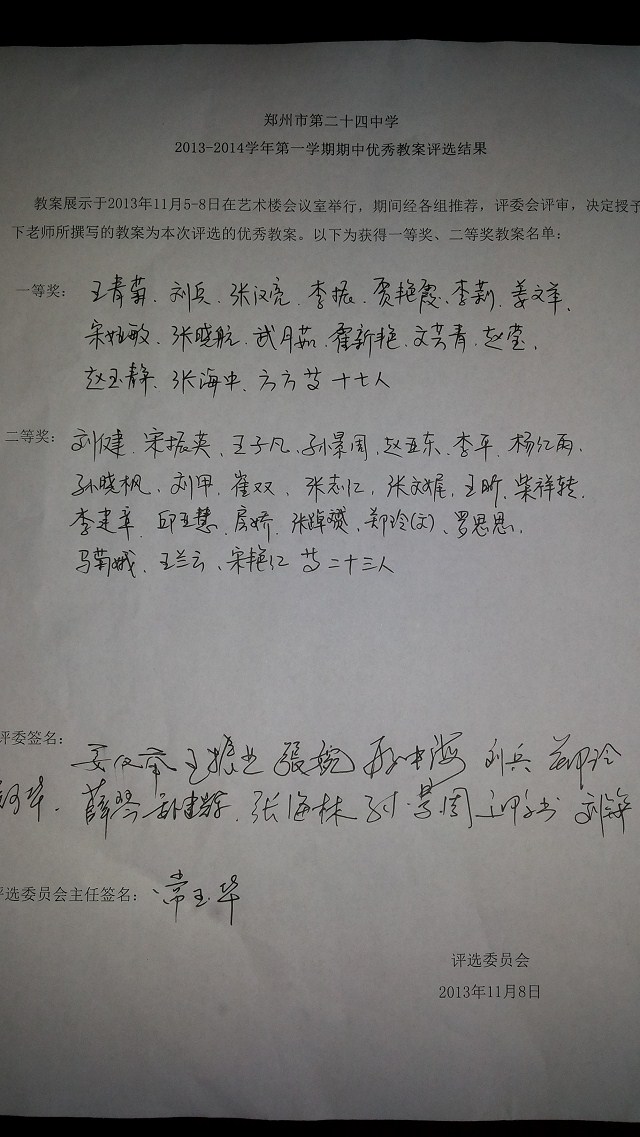 郑州市第二十四中学
2013-2014学年第一学期期中优秀教案评选结果
教案展示于2013年11月5-8日在艺术楼会议室举行，期间经各组推荐，评委会评审，决定授予
下老师所撰写的教案为本次评选的优秀教案。以下为获得一等奖、二等奖教案名单：
一等奖： 王青菊、刘兵、张汉亮、李振、贾艳霞、李莉、姜文革、
宋娅敏、张晓航、武月茹、霍新艳、文芸青、赵莹、
赵玉静、张海中、方方等十七人
二等奖： 刘健、宋振英、王子凡、孙景周、赵亚东、李平、杨红雨、
孙晓枫、刘甲、崔双、张志仁、张文娓、王昕、柴祥转、
李建章、邱玉慧、房娇、张焯斌、郑玲(文)、罗思思、
马菊娥、王兰云、宋艳红等二十三人
评委签名： 姜文革 王振业 張婉 孙中海 刘兵 郑玲
薛琴 张海林 孙景周
评选委员会主任签名： 常玉华
评选委员会
2013年11月8日